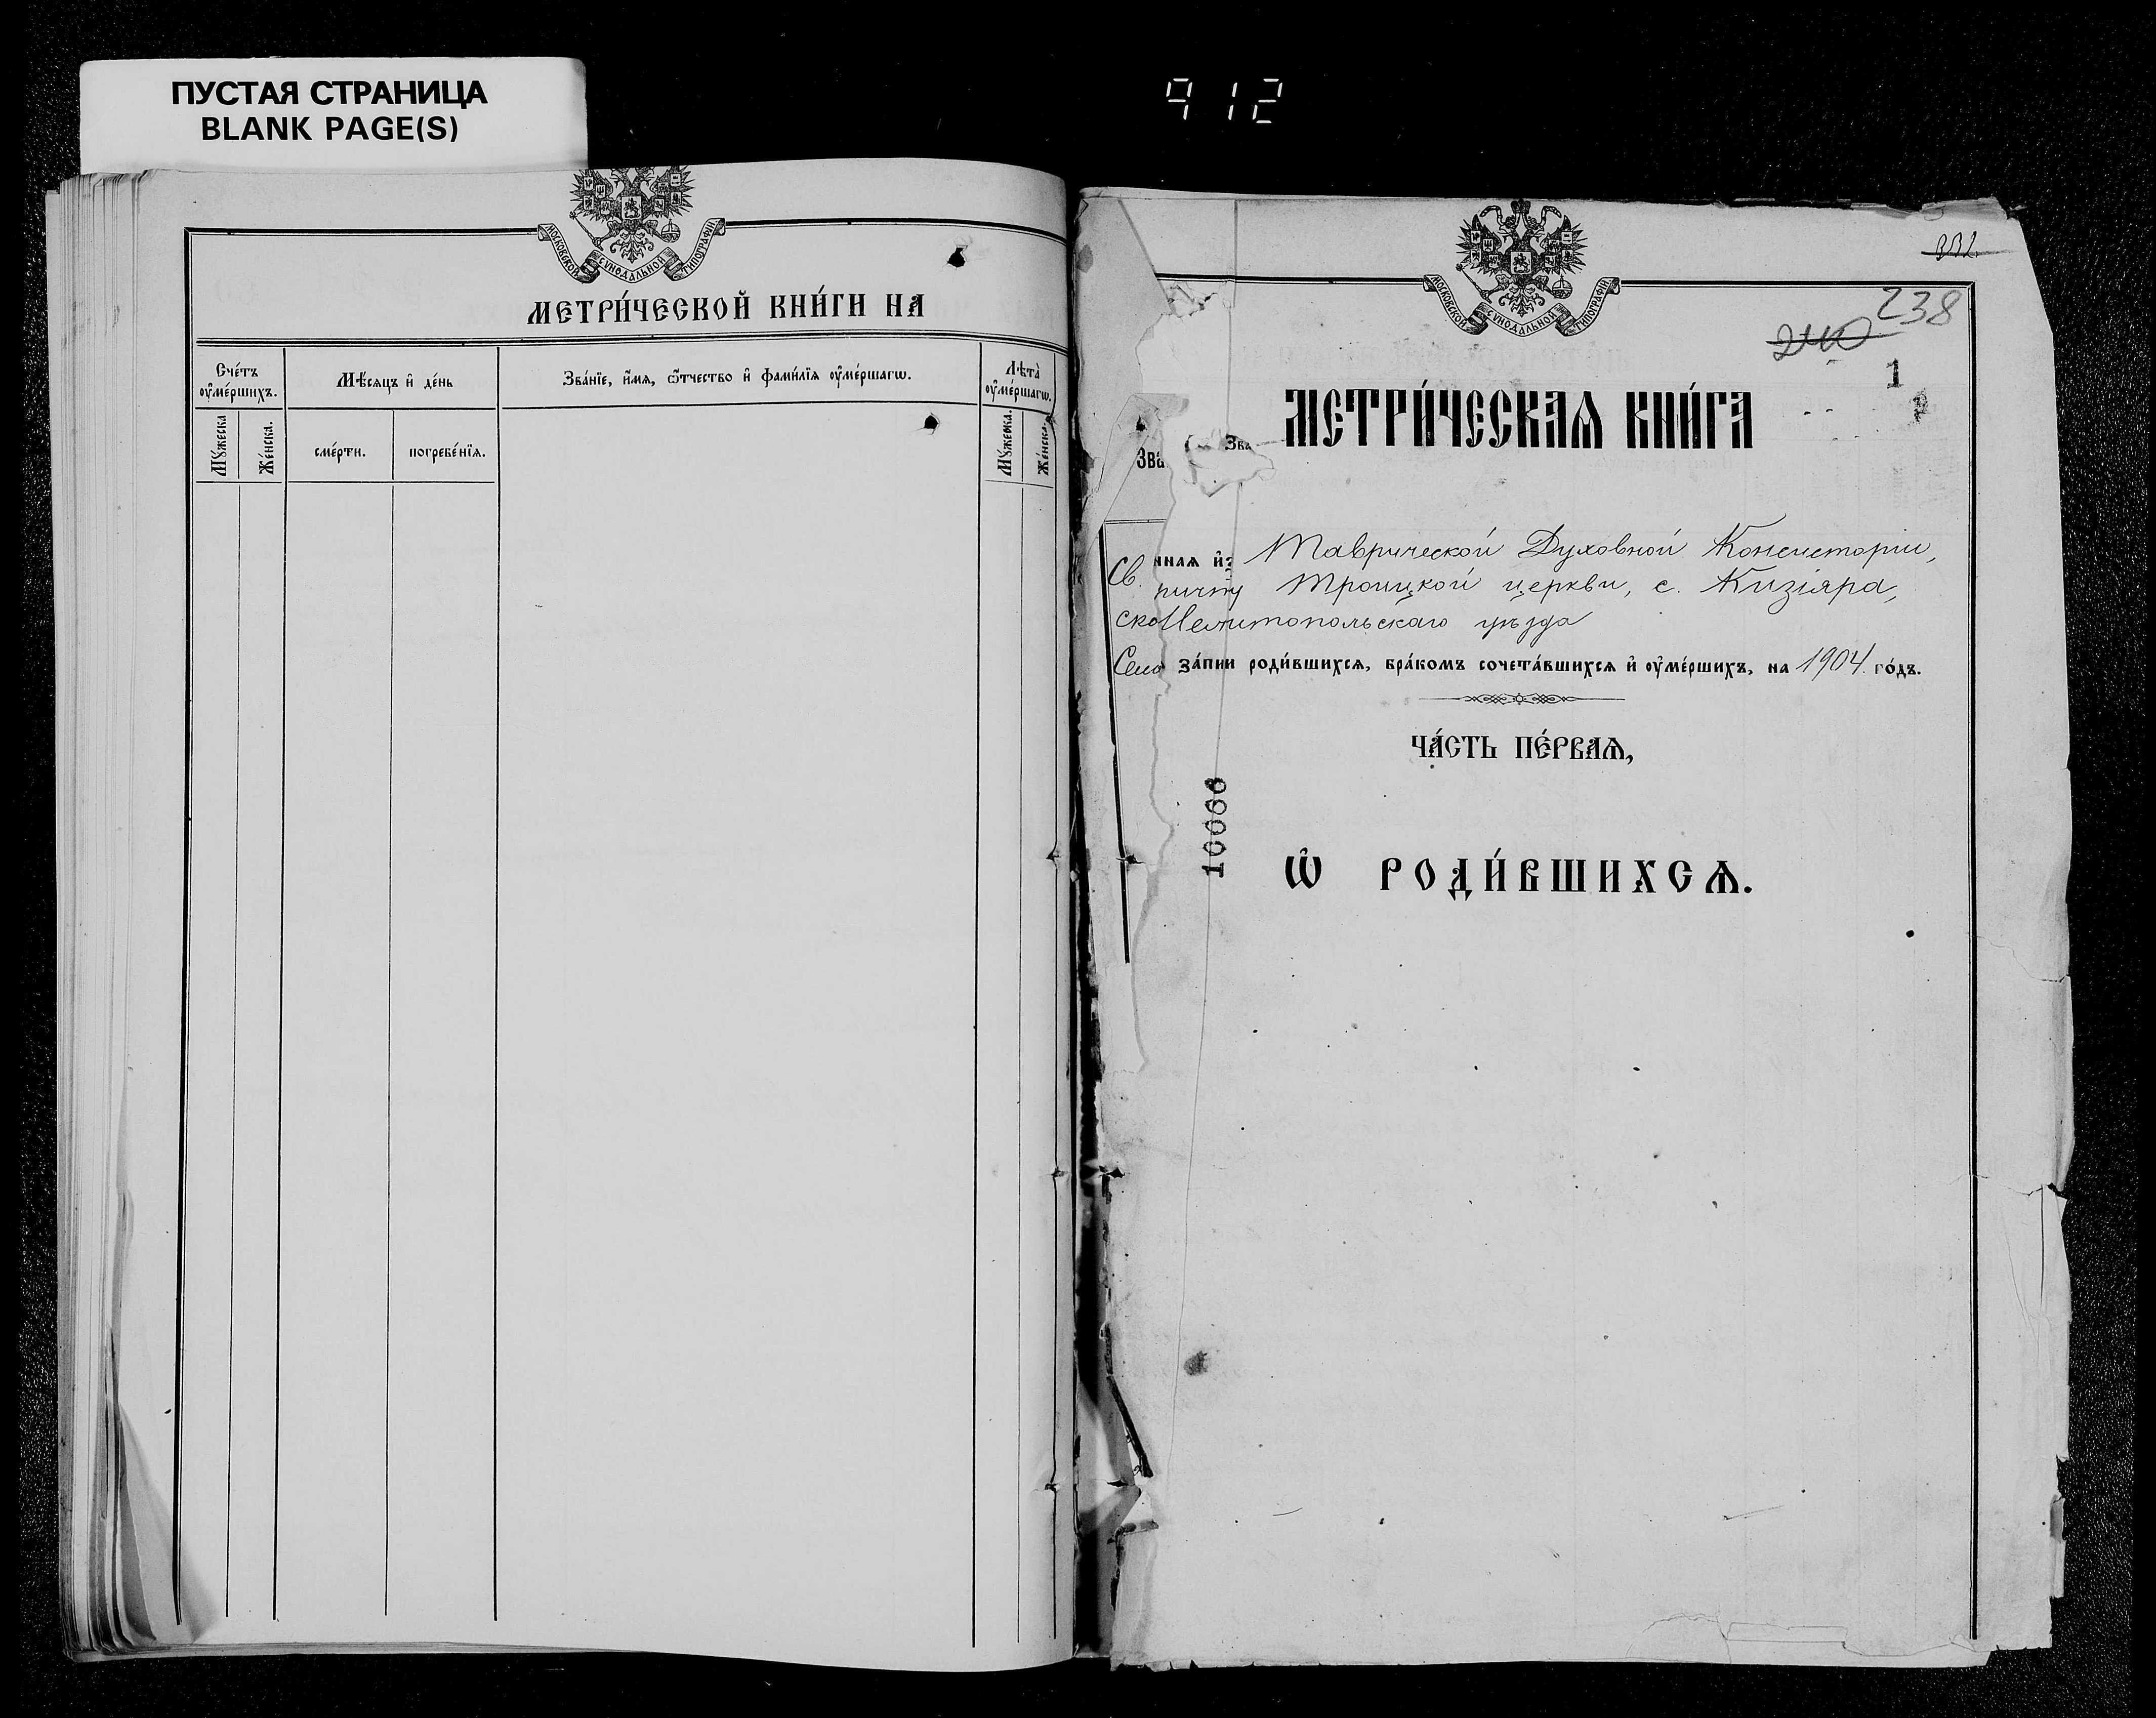 ПУСТАЯ СТРАНИЦА
BLANK PAGE(S)
912
МОСКОВСКОЙ СѴНОДАЛЬНОЙ ТИПОГРАФІИ
МЕТРИ́ЧЕСКОЙ КНИ́ГИ НА
Сче́тъ ᲂу҆ме́ршихъ.
Мѣ́сяцъ и҆ де́нь
Зва́нїе, и҆́мя, ѻ҆́тчество и҆ фами́лїя ᲂу҆ме́ршагѡ.
Лѣта̀ ᲂу҆ме́ршагѡ.
Мꙋ́жеска
Же́нска.
сме́рти.
погребе́нїя.
Мꙋ́жеска.
Же́нска.
МОСКОВСКОЙ СѴНОДАЛЬНОЙ ТИПОГРАФІИ
238
240
1
1
МЕТРИ́ЧЕСКАѦ КНИ́ГА
Зва
Зва
Св. нная и҆з Таврической Духовной Консисторіи,
причту Троицкой церкви, с. Кизіяра,
ско Мелитопольскаго уѣзда
Село за́пи и роди́вшихсѧ, бра́комъ сочета́вшихсѧ и҆ ᲂу҆ме́ршихъ, на 1904 го́дъ.
ЧА́СТЬ ПЕ́РВАѦ,
10066
Ѽ РОДИ́ВШИХСѦ.